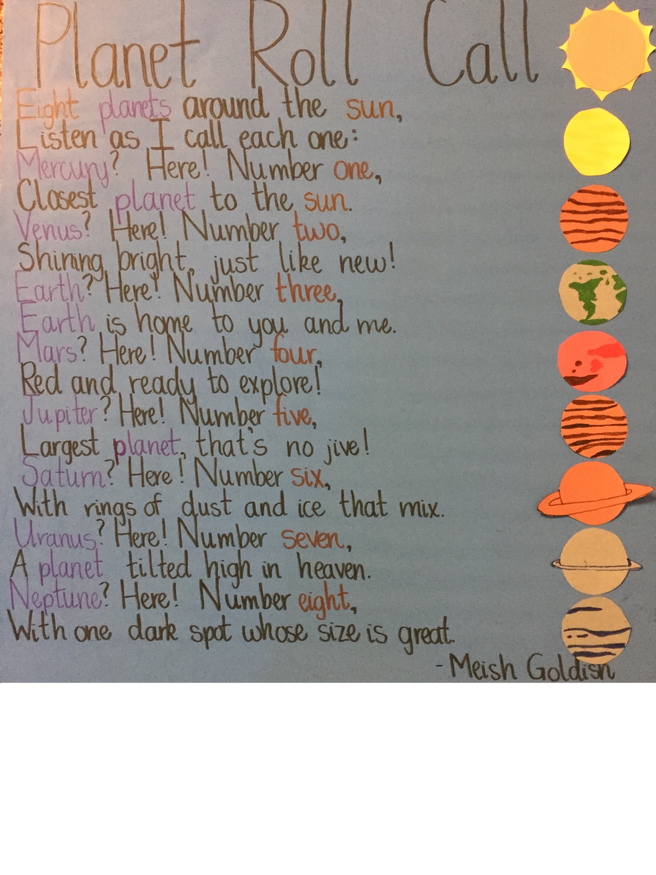 Planet Roll Call
Eight planets around the sun,
Listen as I call each one:
Mercury? Here! Number one,
Closest planet to the sun.
Venus? Here! Number two,
Shining bright, just like new!
Earth? Here! Number three,
Earth is home to you and me.
Mars? Here! Number four,
Red and ready to explore!
Jupiter? Here! Number five,
Largest planet, that's no jive!
Saturn? Here! Number six,
With rings of dust and ice that mix.
Uranus? Here! Number seven,
A planet tilted high in heaven.
Neptune? Here! Number eight,
With one dark spot whose size is great.
- Meish Goldish